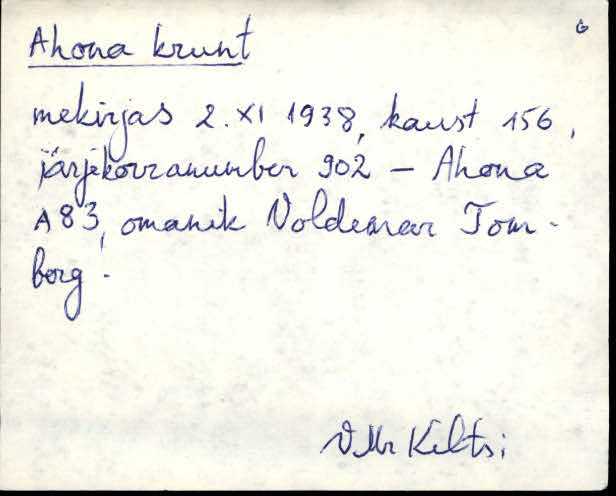 6
Ahona krunt
mekirjas 2. XI 1938, kaust 156,
järjekorranumber 902 – Ahona
A 83, omanik Voldemar Tom-
berg.
VMr Keltsi